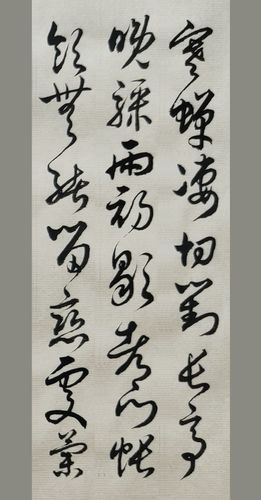 寒蟬凄切對長亭
晚驟雨初歇都門帳
飲無緒留戀處蘭